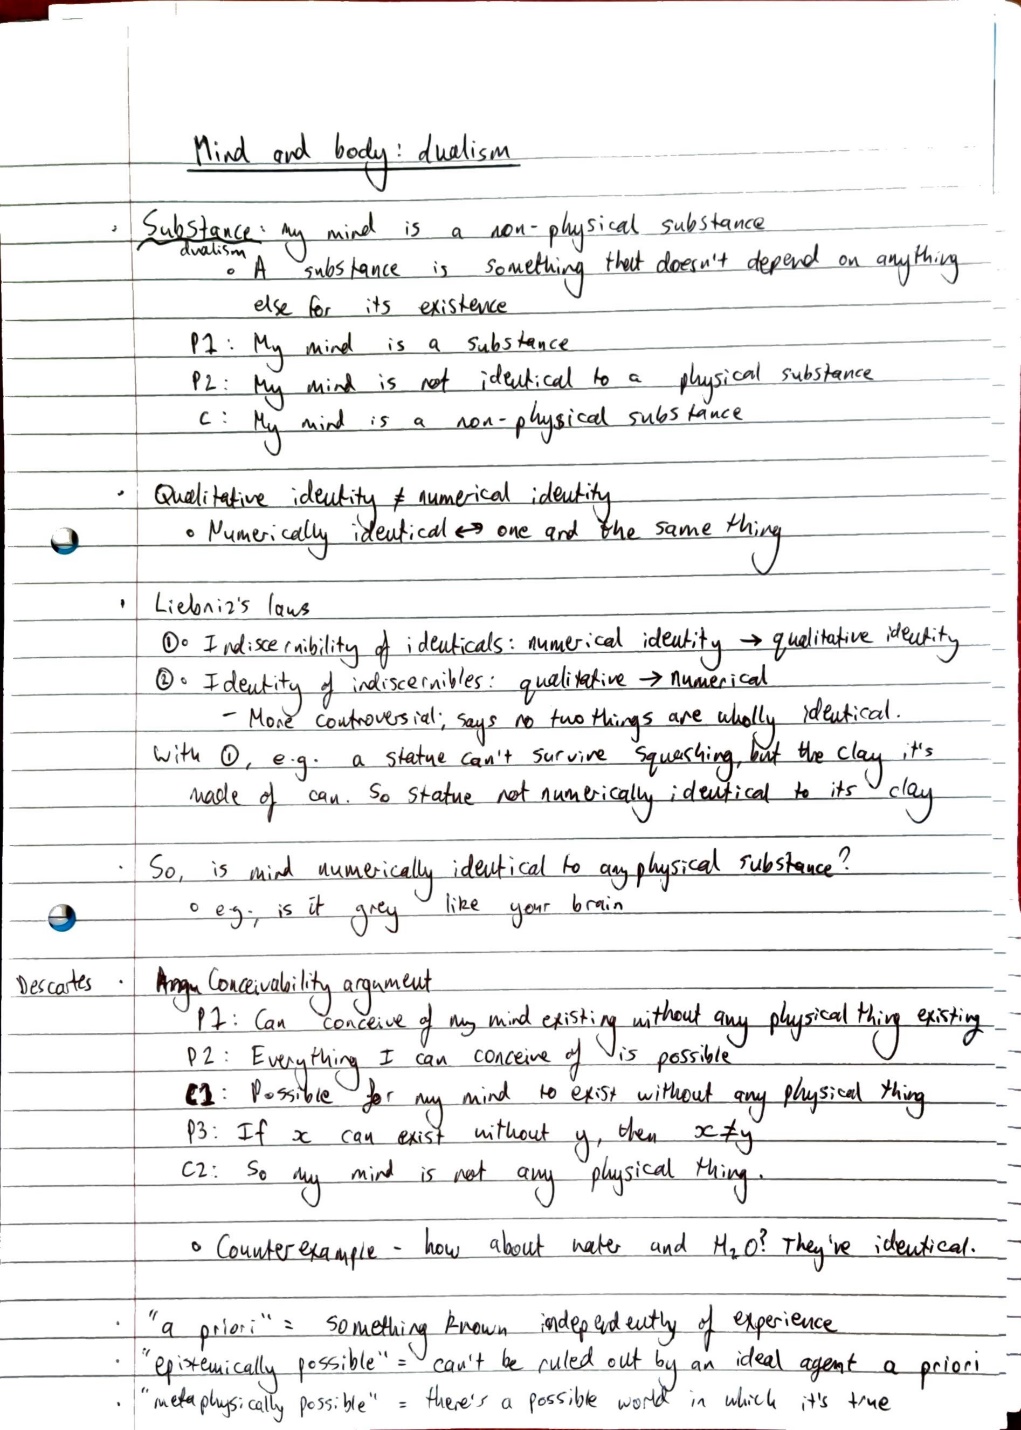 Mind and body: dualism
· Substance: My mind is a non-physical substance
dualism
◦ A substance is something that doesn't depend on anything
else for its existence
P1: My mind is a substance
P2: My mind is not identical to a physical substance
C: My mind is a non-physical substance
· Qualitative identity ≠ numerical identity
◦ Numerically identical ↔ one and the same thing
· Liebniz's laws
①◦ Indiscernibility of identicals: numerical identity → qualitative identity
②◦ Identity of indiscernibles: qualitative → numerical
- More controversial; says no two things are wholly identical.
With ①, e.g. a statue can't survive squashing, but the clay it's
made of can. So statue not numerically identical to its clay
· So, is mind numerically identical to any physical substance?
◦ e.g., is it grey like your brain
Descartes · Conceivability argument
P1: Can conceive of my mind existing without any physical thing existing
P2: Everything I can conceive of is possible
C1: Possible for my mind to exist without any physical thing
P3: If x can exist without y, then x≠y
C2: So my mind is not any physical thing.
◦ Counterexample - how about water and H₂O? They're identical.
· "a priori" = something known independently of experience
· "epistemically possible" = can't be ruled out by an ideal agent a priori
· "metaphysically possible" = there's a possible world in which it's true